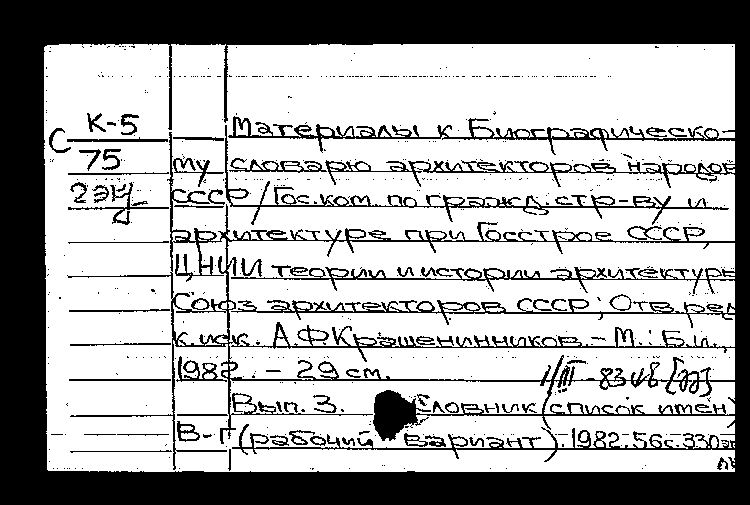 К-5
С 75
2 экз
Материалы к Биографическо-
му словарю архитекторов народов
СССР / Гос.ком. по гражд. стр-ву и
архитектуре при Госстрое СССР,
ЦНИИ теории и истории архитектуры
Союз архитекторов СССР; Отв. ред
к.иск. А.Ф Крашенинников. – М.: Б.и.,
1982. – 29 см.
Вып. 3. Словник (список имен)
В-Г (рабочий вариант). 1982. 56с. 330